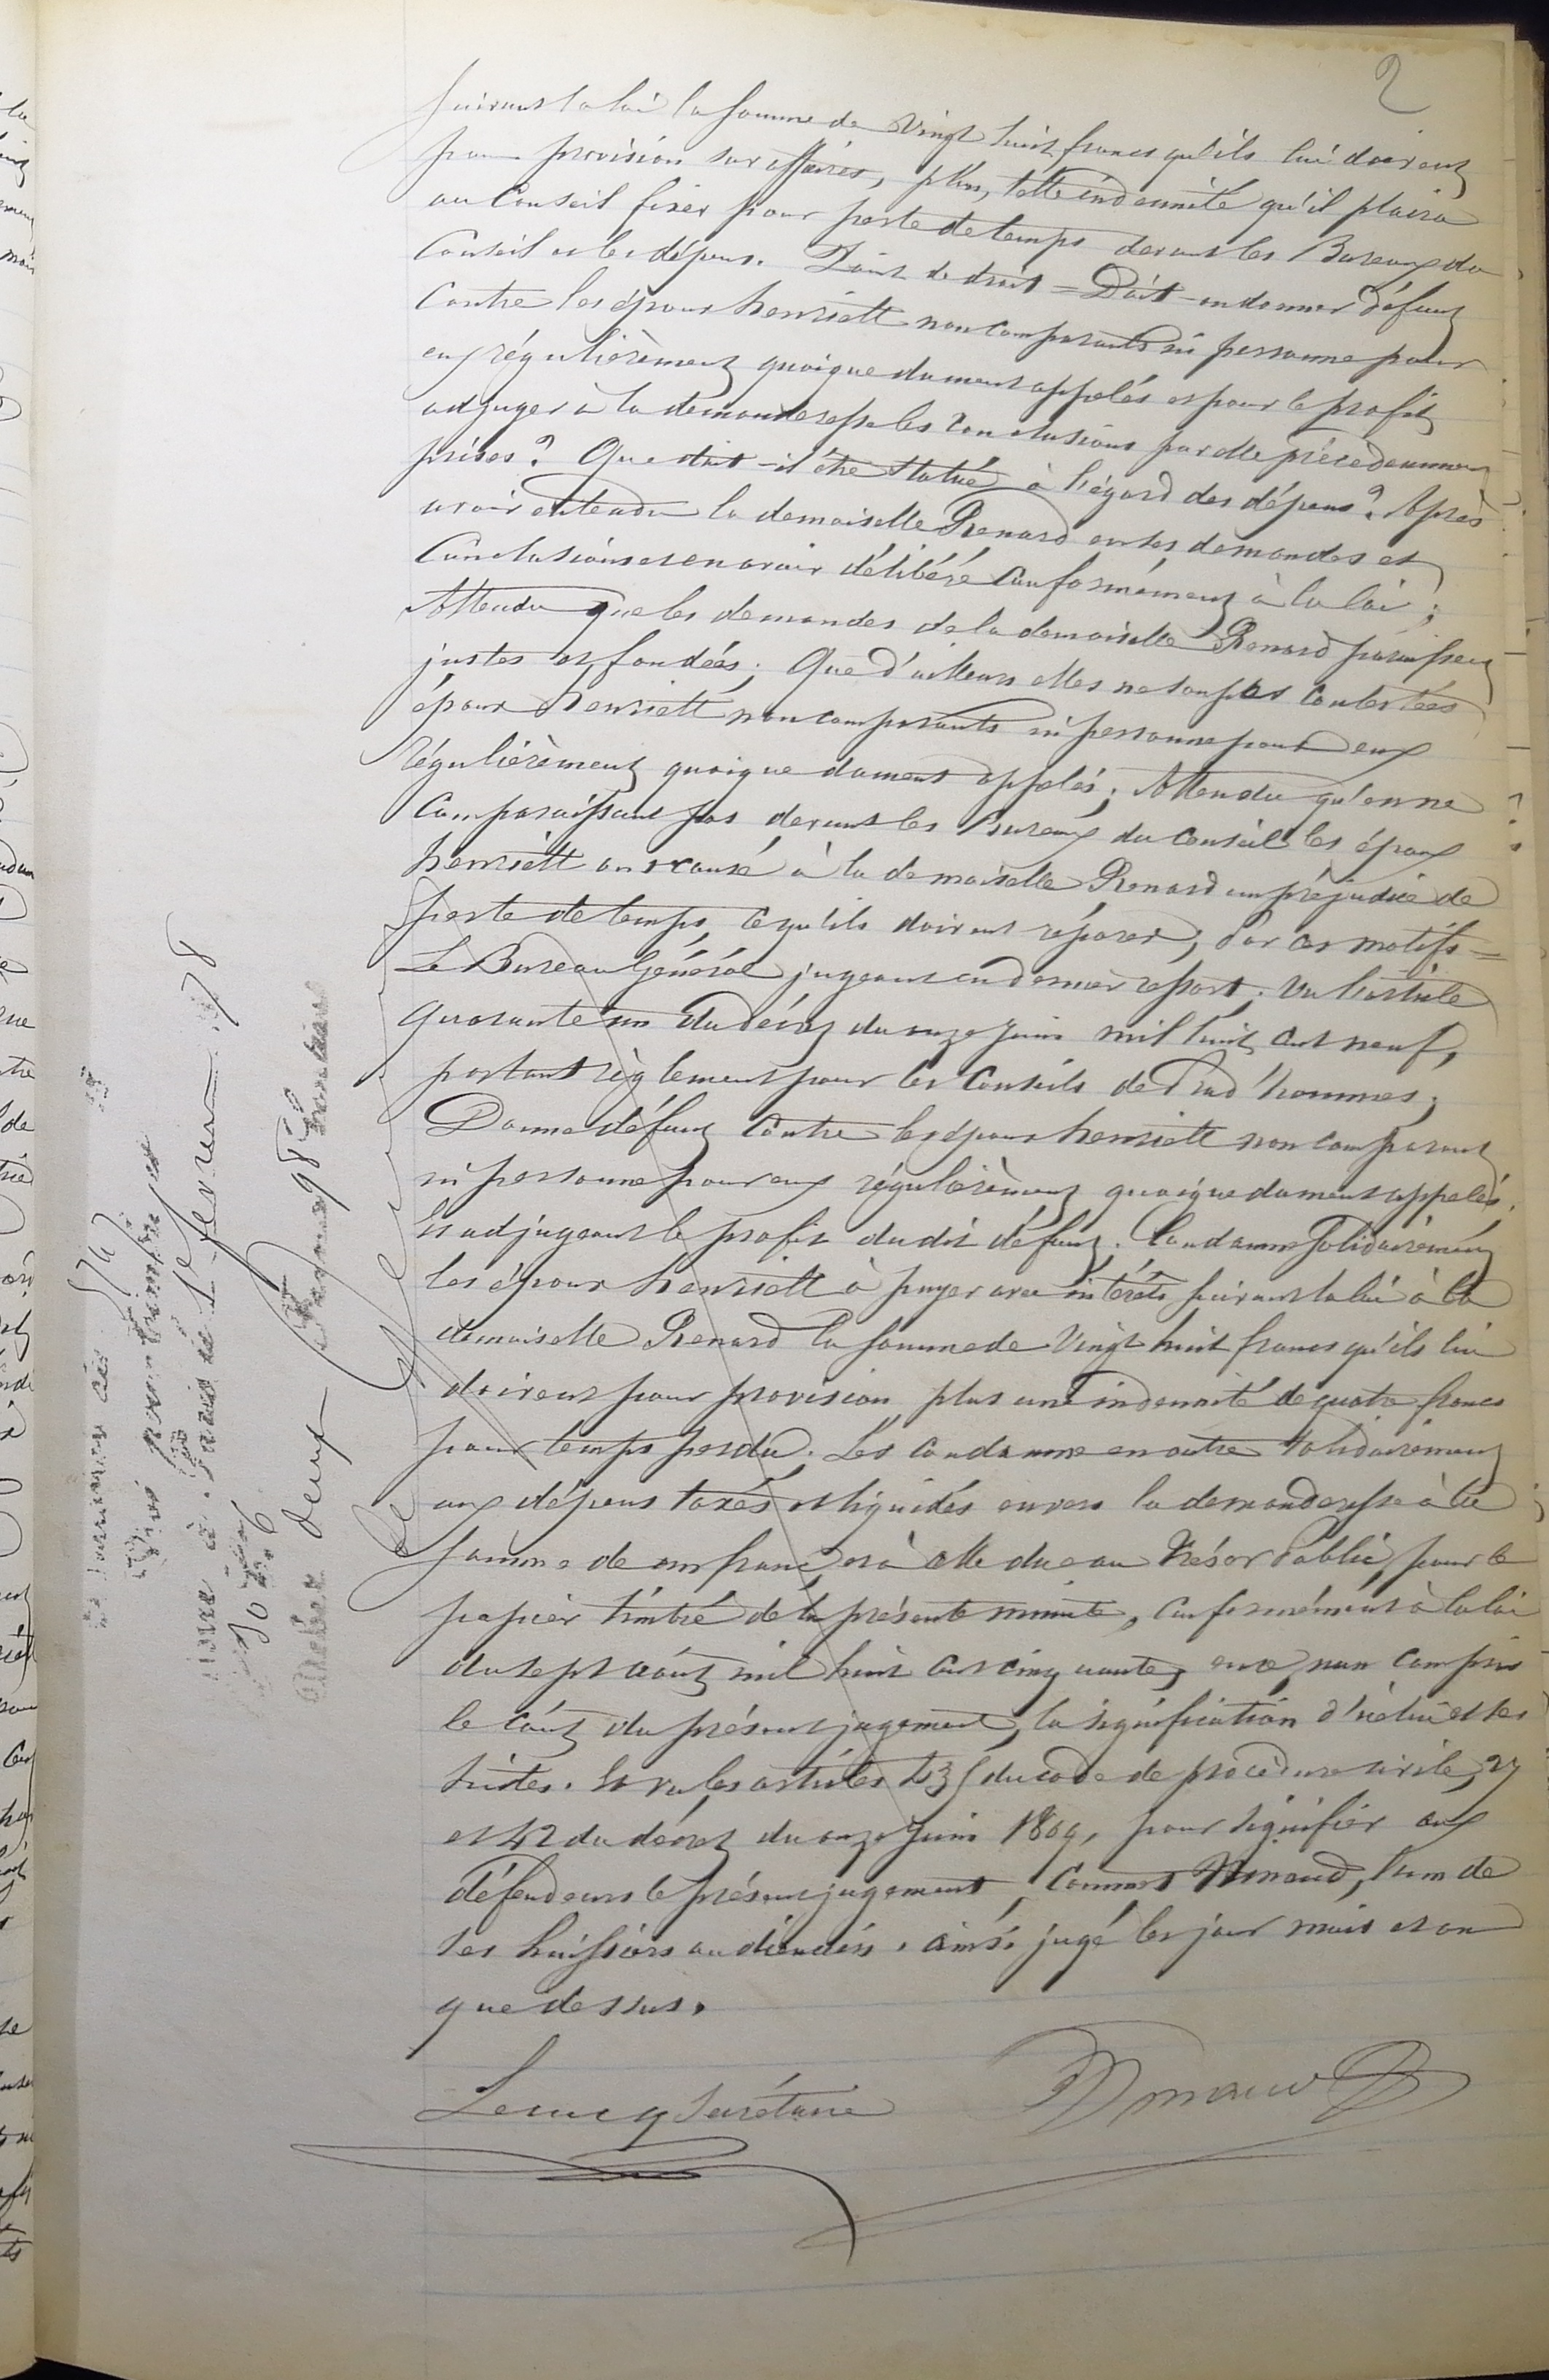 2
suivant la loi la somme de vingt huit francs qu'ils lui doivent
pour provision sur affaires, plus, telle indemnité qu'il plaira
au Conseil fixer pour perte de temps devant les Bureaux du
Conseil et les dépens. Point de droit = Doit-on donner défaut
Contre les époux henriett non comparants ni personne pour
eux régulièrement quoique dument appelés et pour le profit
adjuger à la demanderesse les conclusions par elle précédemment
prises? Que doit-il être statué à l'égard des dépens? Après
avoir entendu la demoiselle Renard en ses demandes et
Conclusions et en avoir délibéré conformément à la loi;
Attendu que les demandes de la demoiselle Renard paraissent
justes et fondées; Que d'ailleurs elles ne sont pas contestées
époux henriett non comparants ni personne pour eux
régulièrement quoique dument appelés; Attendu qu'en ne
Comparaissant pas devant les Bureaux du Conseil les époux
henriett ont causé à la demoiselle Renard un préjudice de
perte de temps, ce qu'ils doivent réparer; Par ces motifs =
Le Bureau Général jugeant en dernier ressort; vu l'article
quarante un du décret du onze juin mil huit cent neuf,
portant règlement pour les Conseils de Prud'hommes;
Donne défaut Contre les époux henriett non comparant
ni personne pour eux régulièrement quoique dument appelés.
Et adjugeant le profit dudit défaut; Condamne solidairement
les époux henriett à payer avec intérêts suivant la loi à la
demoiselle Renard la somme de Vingt huit francs qu'ils lui
doivent pour provision plus une indemnité de quatre francs
pour temps perdu. Les condamne en outre solidairement
aux dépens taxés et liquidés envers la demanderesse à la
somme de un franc, et à celle due au Trésor Public, pour le
papier timbré de la présente minute, conformément à la loi
du sept août mil huit cent cinquante, en ce, non compris
le coût du présent jugement, la signification d'icelui et ses
suites. Et vu les articles 435 du code de procédure civile, 27
et 42 du décret du onze juin 1809, pour signifier aux
défendeurs le présent jugement, Commet, l'un de
ses huissiers audienciers. ainsi jugé les jour mois et an
que dessus.
Lecucq Secrétaire